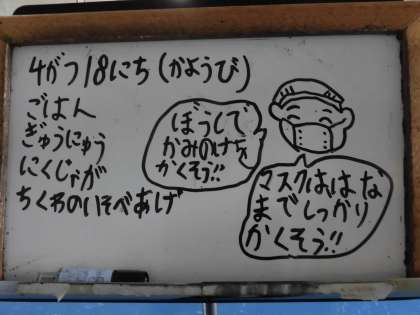 4がつ18にち(かようび)
ごはん
ぎゅうにゅう
にくじゃが
ちくわのいそべあげ
ぼうしで
かみのけを
かくそう!!
マスクははな
までしっかり
かくそう!!